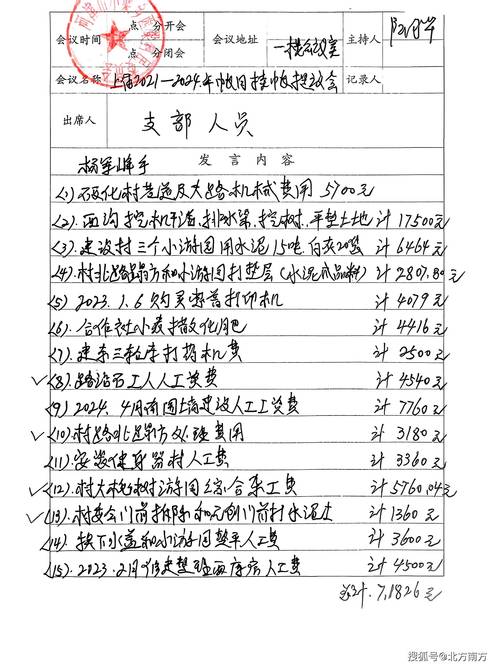 会议时间 点 分开会 点 分闭会 会议地址 一楼会议室 主持人
会议名称 上届2021—2024年 项目挂 会 记录人
出席人 支部人员
发言内容
(1) 硬化村巷道及大路机械费用 5700元
(2). 西沟挖机平活,排水渠,挖树.平垫土地 计17500元
(3). 建设村三个小游园用水泥15吨.白灰20袋 计6464元
(4). 村北路塌方和小游园打垫层(水泥成品料) 计2807.80元
(5) 2023.1.6购买惠普打印机 计4079元
(6). 合作社小麦播种化肥 计4416元
(7). 建 三轮车打 机费 计2500元
(8). 路沿石工人人工费 计4540元
(9) 2024.4月 园 建设人工工资 计7760元
(10). 村路北塌方处理费用 计3180元
(11). 安装健身器材人工费 计3360元
(12). 村大槐树游园综合杂工费 计5760.04元
(13). 村委会门前拆除和 门前打水泥 计1360元
(14). 换下水盖和小游园整平人工费 计3600元
(15). 2023.2月 整理西库房人工费 计4500元
总计.71826元
搜狐号@北方南方